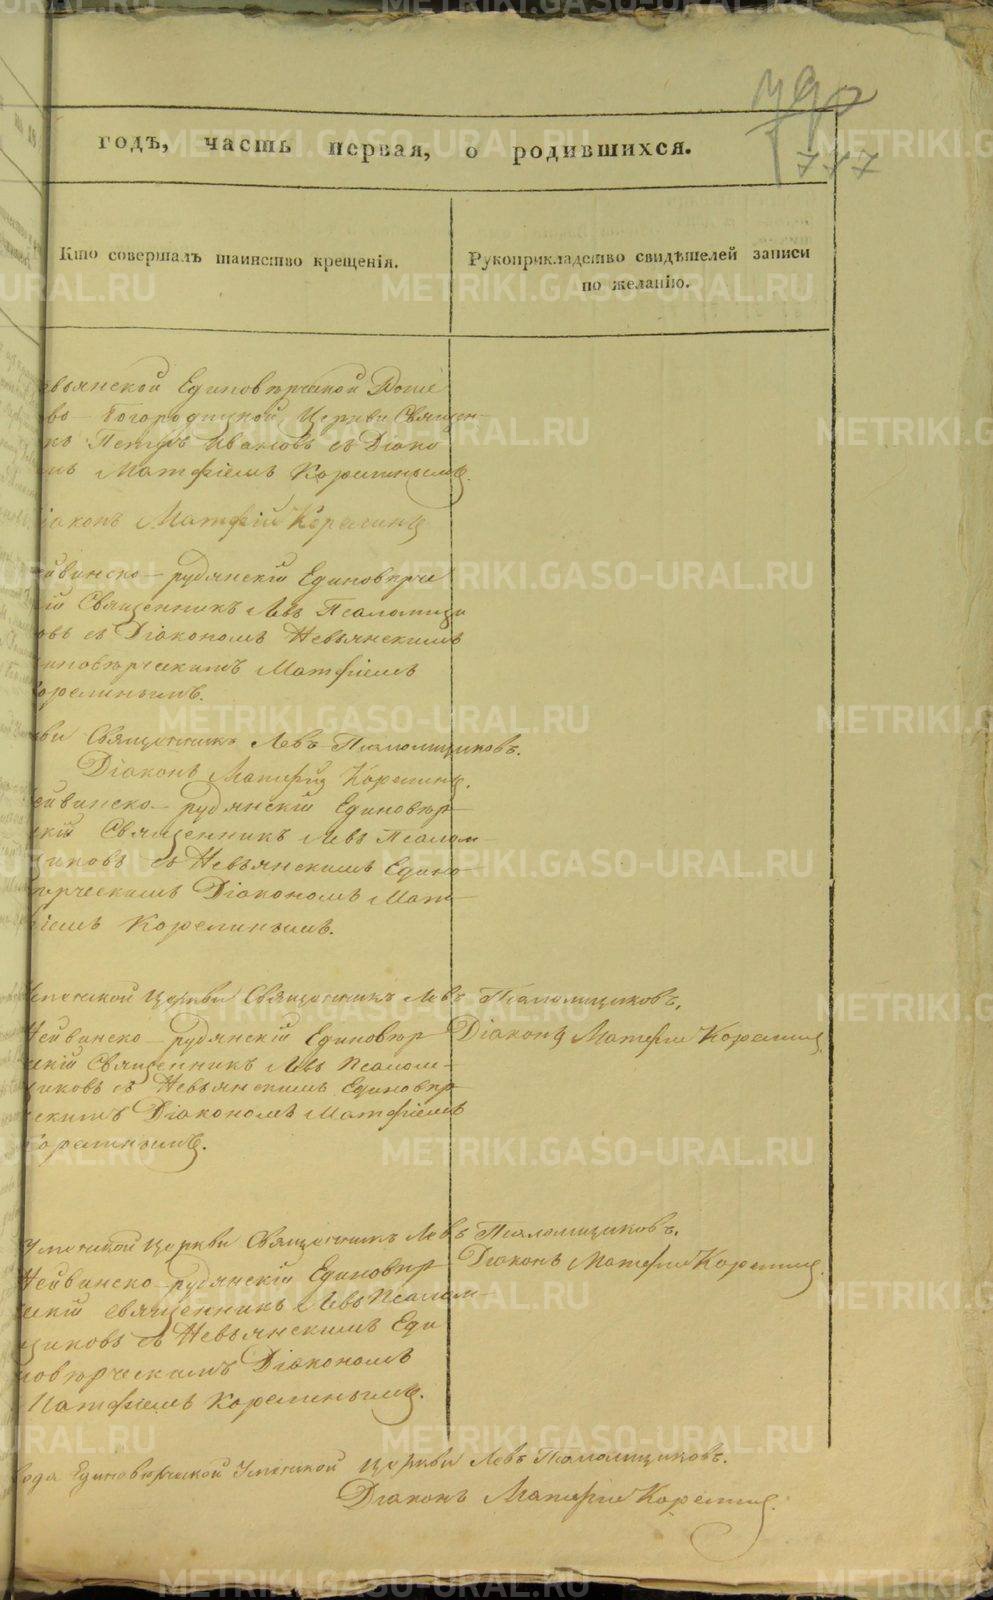 777
годъ, часть первая, о родившихся.
Кто совершалъ таинство крещенія.
Рукоприкладство свидѣтелей записи
по желанію.
вьянской Единовѣрческой Рожде
во - Богородицкой Церкви Священ-
къ Петръ Ивановъ съ Діако
мъ Матфіемъ Корелинымъ.
іаконъ Матфій Корелинъ
йвинско - рудянскій Единовѣрче
ій Священникъ Левъ Псаломщи
овъ съ Діакономъ Невьянскимъ
иновѣрческимъ Матфіемъ
Корелинымъ.
кви Священникъ Левъ Псаломщиковъ.
Діаконъ Матфій Корелинъ.
ейвинско - рудянскій Единовѣр
скій Священникъ Левъ Псалом-
щиковъ съ Невьянскимъ Едино-
вѣрческимъ Діакономъ Мат-
фіемъ Корелинымъ.
Успенской Церкви Священникъ Левъ Псаломщиковъ.
Діаконъ Матфій Корелинъ
Нейвинско - рудянскій Единовѣр
ческій Священникъ Левъ Псалом-
щиковъ съ Невьянскимъ Единовѣр
ческимъ Діакономъ Матфіемъ
Корелинымъ.
Успенской Церкви Священникъ Левъ Псаломщиковъ.
Діаконъ Матфій Корелинъ.
Нейвинско - рудянскій Единовѣр
ческій священникъ Левъ Псалом-
щиковъ съ Невьянскимъ Еди
новѣрческимъ Діакономъ
Матфіемъ Корелинымъ.
вода Единовѣрческой Успенской Церкви Левъ Псаломщиковъ.
Діаконъ Матфій Корелинъ.
METRIKI.GASO-URAL.RU